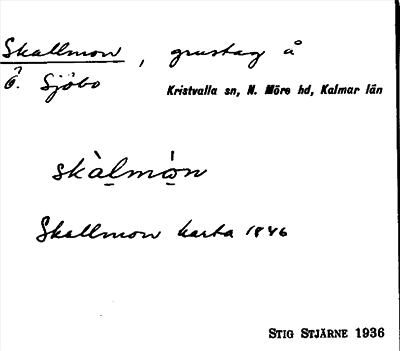 Skallmon, grustag å
Ö. Sjöbo
Kristvalla sn, N. Möre hd, Kalmar län
skàlmòn
Skallmon karta 1846
STIG STJÄRNE 1936